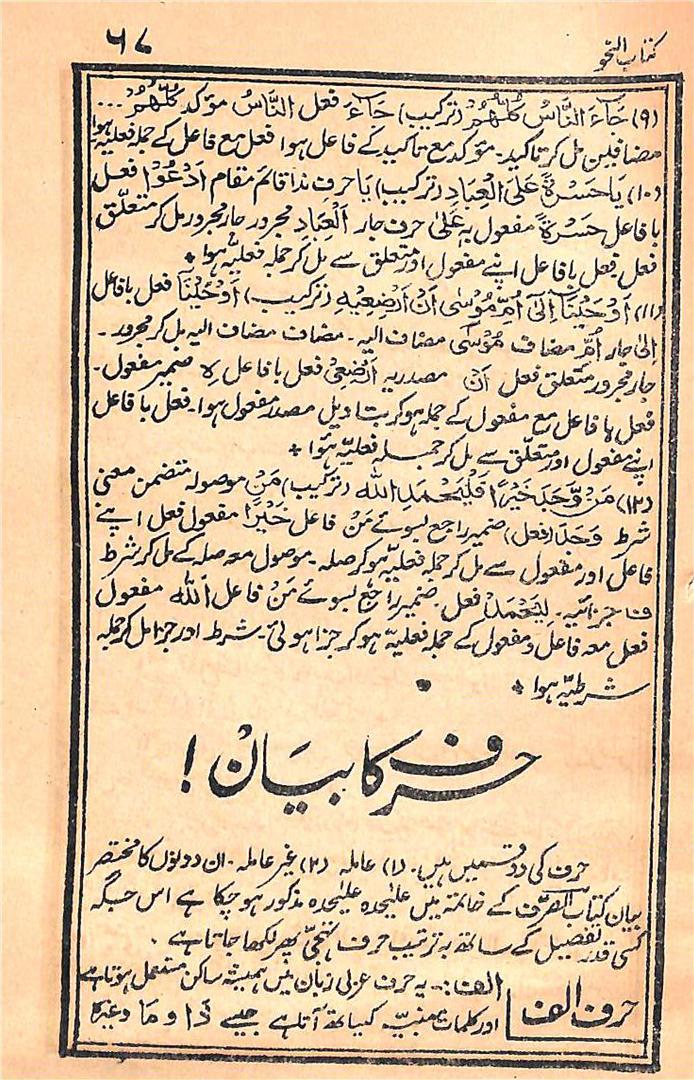 کتاب النحو
۶۸
(۹) جَآءَ النَّاسُ کُلُّهُمْ (ترکیب) جَآءَ فعل النَّاسُ مؤکد کُلُّهُمْ ...
مضافین مل کر تاکید۔ مؤکد مع تاکید کے فاعل ہوا فعل مع فاعل کے جملہ فعلیہ ہوا
(۱۰) یَا حَسْرَةً عَلَی الْعِبَادِ (ترکیب) یَا حرف ندا قائم مقام اَدْعُوْا فعل
با فاعل حَسْرَةً مفعول بہ عَلیٰ حرف جار اَلْعِبَادِ مجرور جار مجرور مل کر متعلق
فعل۔ فعل با فاعل اپنے مفعول اور متعلق سے مل کر جملہ فعلیہ ہوا ٭
(۱۱) اَوْحَیْنَآ اِلٰٓی اُمِّ مُوْسٰی اَنْ اَرْضِعِیْهِ (ترکیب) اَوْحَیْنَآ فعل با فاعل
اِلیٰ جار اُمِّ مضاف مُوْسٰی مضاف الیہ۔ مضاف مضاف الیہ مل کر مجرور۔
جار مجرور متعلق فعل اَنْ مصدریہ اَرْضِعِیْ فعل با فاعل ہٖ ضمیر مفعول۔
فعل با فاعل مع مفعول کے جملہ ہو کر بتاویل مصدر مفعول ہوا۔ فعل با فاعل
اپنے مفعول اور متعلق سے مل کر جملہ فعلیہ ہوا ٭
(۱۲) مَنْ وَّجَدَ خَیْرًا فَلْیَحْمَدِ اللہ (ترکیب) مَنْ موصولہ متضمن معنی
شرط وَجَدَ (فعل) ضمیر راجع بسوئے مَنْ فاعل خَیْرًا مفعول فعل اپنے
فاعل اور مفعول سے مل کر جملہ فعلیہ ہو کر صلہ۔ موصول معہ صلہ کے مل کر شرط
فا جزائیہ۔ لِیَحْمَدْ فعل۔ ضمیر راجع بسوئے مَنْ فاعل اَللہ مفعول
فعل معہ فاعل و مفعول کے جملہ فعلیہ ہو کر جزا ہوئی۔ شرط اور جزا مل کر جملہ
شرطیہ ہوا ٭
حرف کا بیان !
حرف کی دو قسمیں ہیں۔ (۱) عاملہ (۲) غیر عاملہ۔ ان دونوں کا مختصر
بیان کتاب الصرف کے خاتمہ میں علیٰحدہ علیٰحدہ مذکور ہو چکا ہے اس جگہ
کسی قدر تفصیل کے ساتھ بہ ترتیب حرف تہجی پھر لکھا جاتا ہے۔
حرف الف
الف:۔ یہ حرف عربی زبان میں ہمیشہ ساکن مستعمل ہوتا ہے
اور کلمات مبنیہ کیساتھ آتا ہے جیسے ذَا و مَا وغیرہ